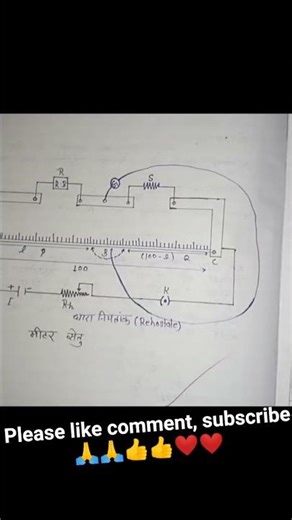 R
S
G
(100-l) R
C
100
K
Rh
धारा नियंत्रक (Rehostate)
मीटर सेतु
Please like comment, subscribe
🙏🙏👍👍❤️❤️